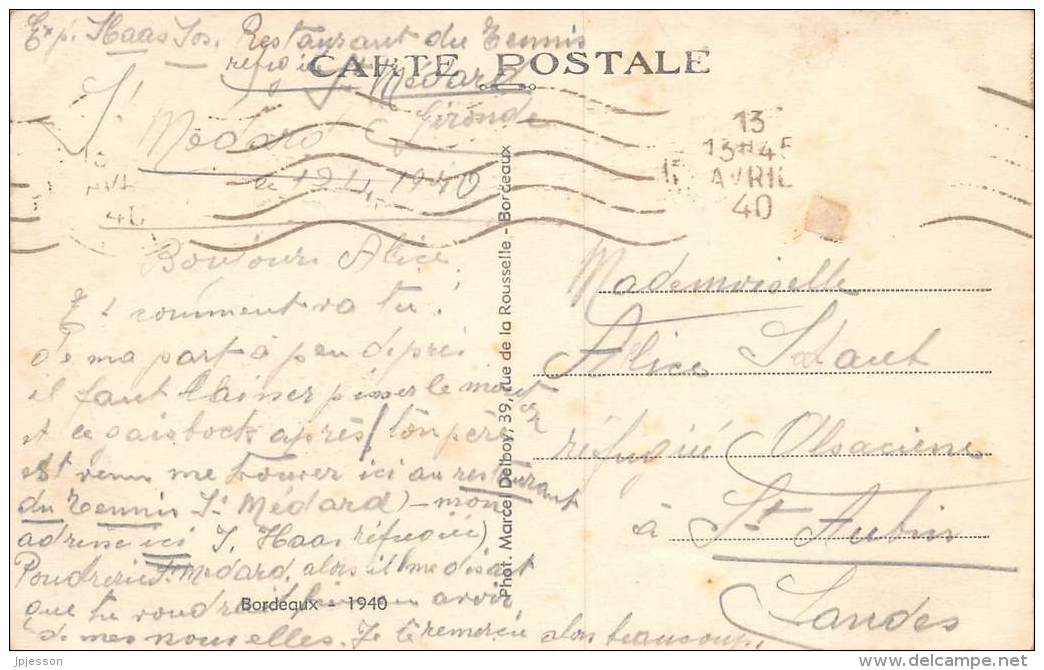 Exp. Haas Jos. Restaurant du Tennis
réfugié St Médard
CARTE POSTALE
St Médard Gironde
le 12 4 1940
13
13H45
AVRIL
40
Bonjour Alice,
Et comment va tu!
de ma part à peu deprès
il faut laisser pisser le mouton
et ce
après ton père
est venu me trouver ici au restaurant
du Tennis St Médard) - mon
adresse ici J. Haas réfugié)
Poudrerie St Medard, alors il me disait
que tu voudrait bien avoir
de mes nouvelles. Je te remercie alors beaucoup,
Bordeaux - 1940
Phot. Marcel Delboy, 39, rue de la Rousselle - Bordeaux
Mademoiselle
Alice
réfugiée Alsacienne
à St Aubin
Landes
jpjesson